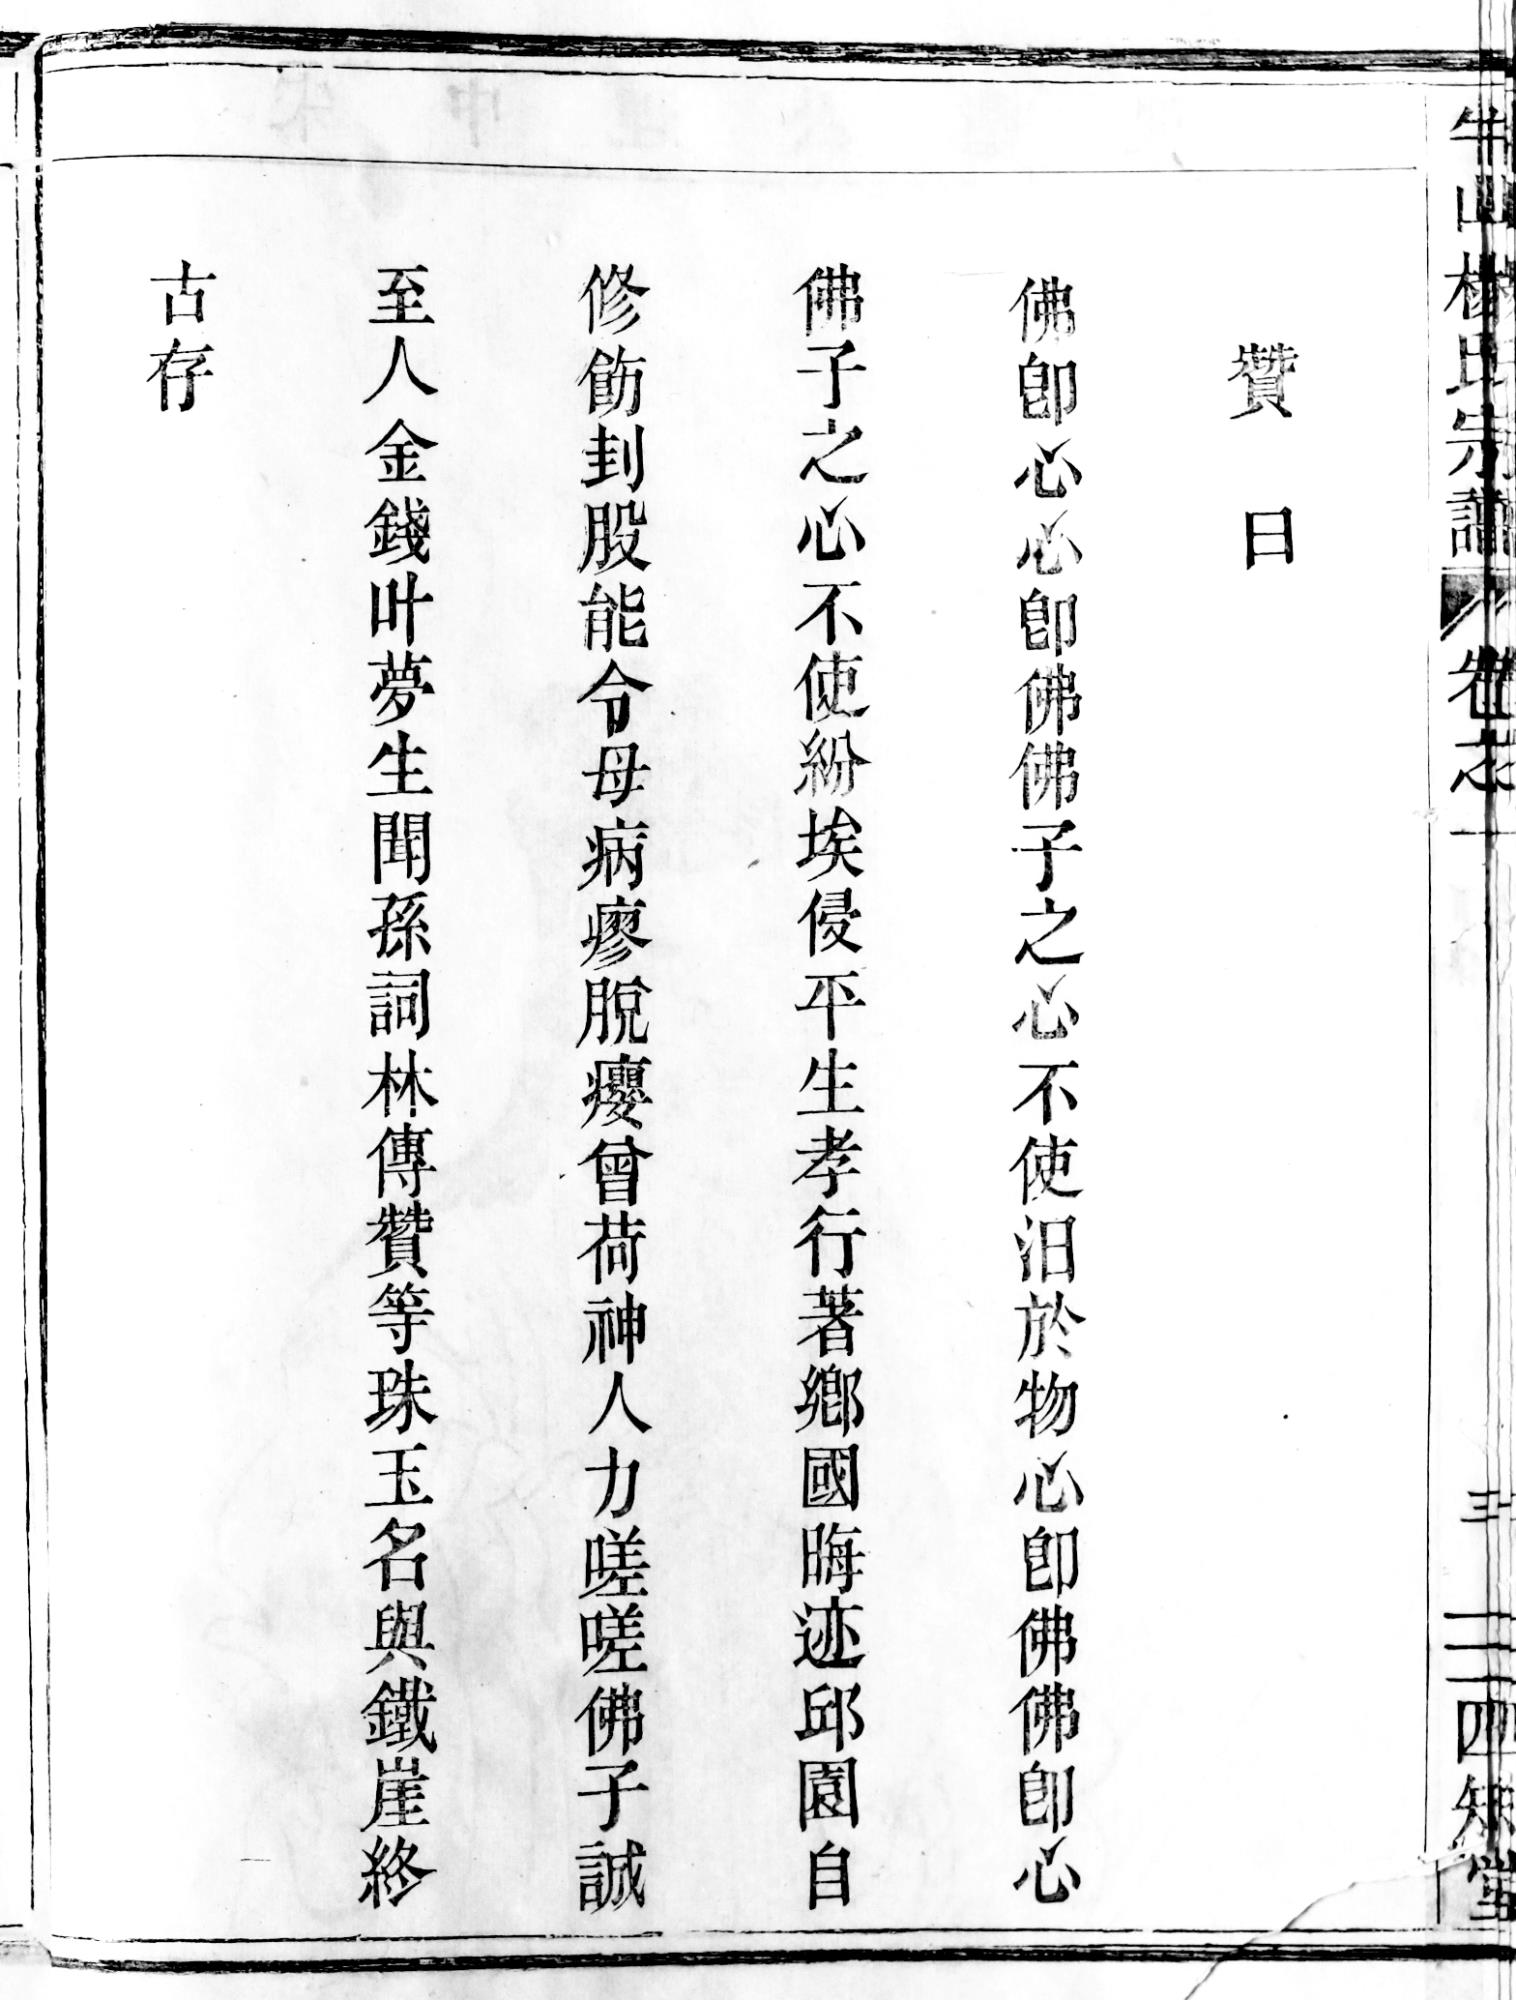 贊曰
佛卽心心卽佛佛子之心不使汨於物心卽佛佛卽心
佛子之心不使紛埃侵平生孝行著鄉國晦迹邱園自
修飭刲股能令母病瘳脫癭曾荷神人力嗟嗟佛子誠
至人金錢叶夢生聞孫詞林傳贊等珠玉名與鐵崖終
古存
牛山楊氏宗譜 卷之一 四知堂